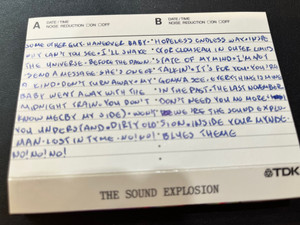 A DATE / TIME NOISE REDUCTION □ON □OFF
B DATE / TIME NOISE REDUCTION □ON □OFF
SOME OTHER GUY · HANGOVER BABY · HOPELESS ENDLESS WAY ·
CAN'T YOU SEE · I'LL SHAKE · IN OUTER LIMITS
THE UNIVERSE · BEFORE THE DAWN · STATE OF MIND · I'M NOT
SEND A MESSAGE · SHE'S ONE OF TALKIN · IT'S FOR YOU · YOU'RE
A KIND · DON'T TURN AWAY · MY GONNA SEE · EVERYTHING IS MINE
BABY WENT AWAY WITH THE IN THE PAST · THE LAST NOVEMBER
MIDNIGHT TRAIN · YOU DON'T DON'T NEED YOU NO MORE ·
KNOW ME (BY MY SIDE) · WON'T THE SOUND EXPLO-
YOU UNDERSTAND · DIRTY OLD SION · INSIDE YOUR MIND ·
MAN · LOST IN TYME · NO! NO! BLUES THEME
NO! NO! NO!
THE SOUND EXPLOSION
TDK